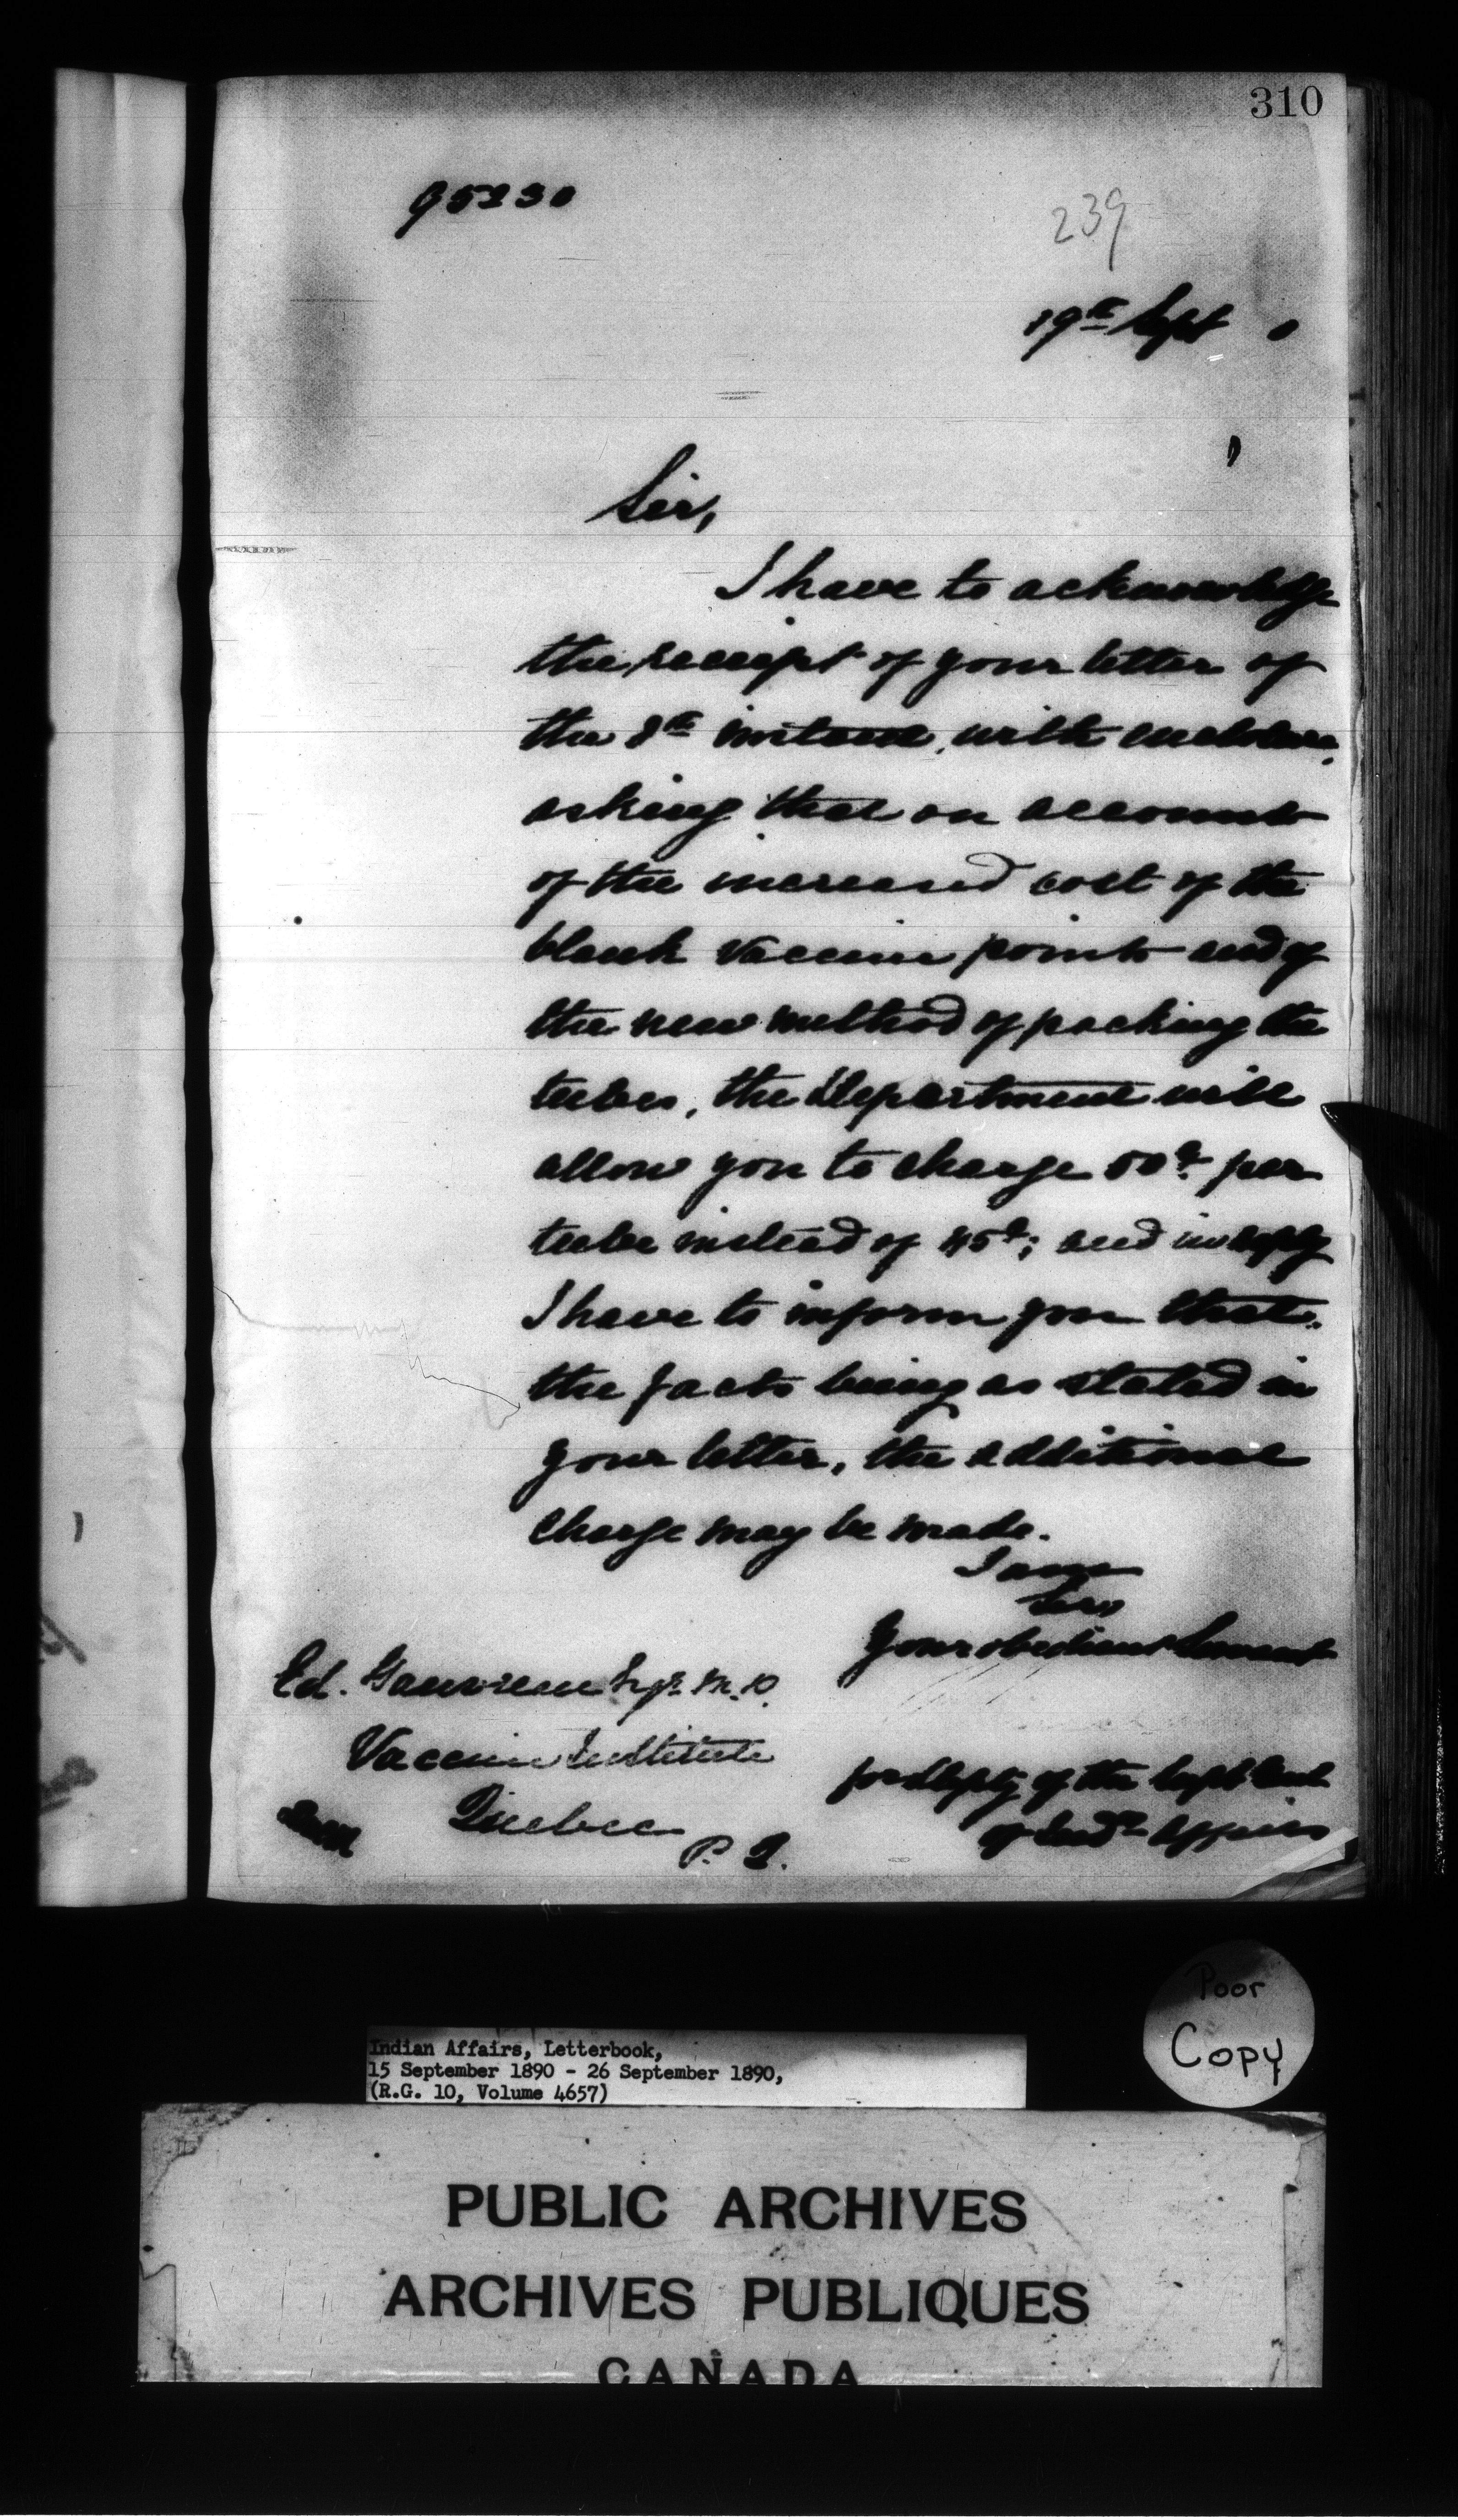 310
95230
239
19th Sept 0
Sir,
I have to acknowledge
the receipt of your letter of
the 8th instant, with enclosure,
asking that on account
of the increased cost of the
blank vaccine points and of
the new method of packing the
tubes, the Department will
allow you to charge 50¢ per
tube instead of 45¢; and in reply
I have to inform you that,
the facts being as stated in
your letter, the additional
charge may be made.
I am
Sir,
Your obedient Servant
Ed. Gauvreau Esqr. M.D.
Vaccine Institute
Quebec
P. Q.
for Depty of the Supt Genl
of Indn Affairs
Poor
Copy
Indian Affairs, Letterbook,
15 September 1890 - 26 September 1890,
(R.G. 10, Volume 4657)
PUBLIC ARCHIVES
ARCHIVES PUBLIQUES
CANADA